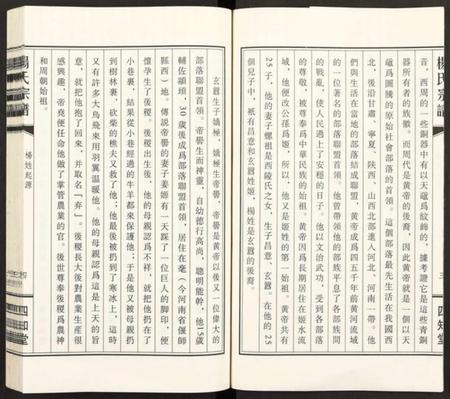 楊氏宗譜
三
四知堂
音，西周的一些銅器中有以天黿爲紋飾的，據考證它是這些青銅
器所有者的族徽。而周代是黃帝的後裔，因此黃帝就是一個以天
黿爲圖騰的原始社會部落的首領。這個部落最先生活在我國西
北，後沿甘肅、寧夏、陝西、山西北部進入河北、河南一帶。他
們與生活在當地的部落結成聯盟，黃帝成爲四五千年前黃河流域
的一位著名的部落聯盟首領。他曾帶領他的部族平息了各部族間
的戰亂，使人民過上了安穩的日子。他以文治武功，受到各部落
的尊敬，被尊奉爲中華民族的始祖。黃帝因爲長期居住在姬水流
域，他便改公孫爲姬，所以，他又是姬姓的第一始祖。黃帝共有
25子，他的妻子嫘祖是西陵氏之女，生子昌意、玄囂。在他的25
個兒子中，祇有昌意和玄囂姓姬，楊姓是玄囂的後裔。
玄囂生子蟜極，蟜極生帝嚳，帝嚳是黃帝以後又一位偉大的
部落聯盟首領。帝嚳生而神靈，自幼德行高尚，聰明能幹，他15歲
輔佐顓頊，30歲後成爲部落聯盟首領，居住在亳（今河南省偃師
縣西）地。傳説帝嚳的妻子姜嫄有一天踩了一位巨人的脚印，便
懷孕生了後稷。後稷出生後，他的母親認爲不祥，就把他扔在了
小巷裏，結果從小巷經過的牛羊都來保護他；于是他又被母親扔
到樹林裏，欲柴的樵夫又救了他；他最後被扔到了寒冰上，這時
又有許多大鳥飛來用羽翼温暖他。他的母親認爲這是上天的旨
意，就把他抱了回來，并取名「弃」。後稷長大後對農業生産很
感興趣，帝堯便任命他做了掌管農業的官。後世尊奉後稷爲農神
和周朝始祖。
楊氏宗譜
楊姓起源
四知堂